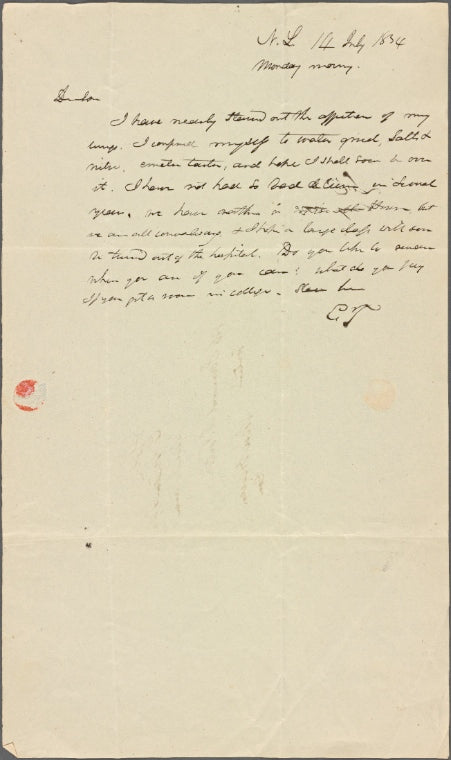 N. L 14 July 1834
Monday morng.
Dr Son
I have nearly the affection of my
lungs. I confined myself to water gruel, Salts &
nitre, emetic tartar, and hope I shall soon be over
it. I have not had so bad a in several
years. we have but
we are all convalescing & I think a large class will soon
be turned out of the hospital. Do you like to
where you are if you can? what do you pay
if you get a room in college